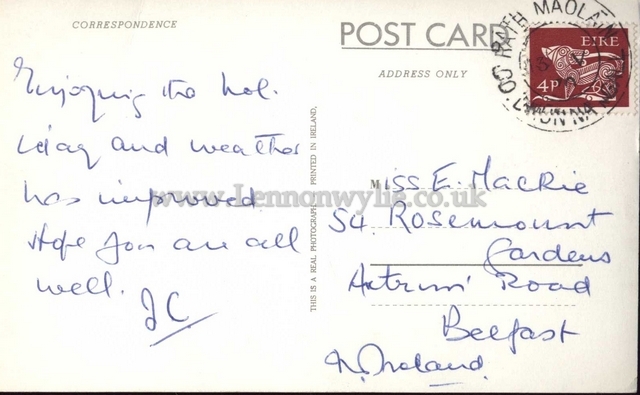 CORRESPONDENCE
POST CARD
ADDRESS ONLY
ÉIRE
4P
Enjoying the hol-
iday and weather
has improved
Hope you are all
well.
JC
Miss E. Mackie
54 Rosemount
Gardens
Antrim Road
Belfast
N. Ireland.
THIS IS A REAL PHOTOGRAPH
PRINTED IN IRELAND,
www.Lennonwylie.co.uk